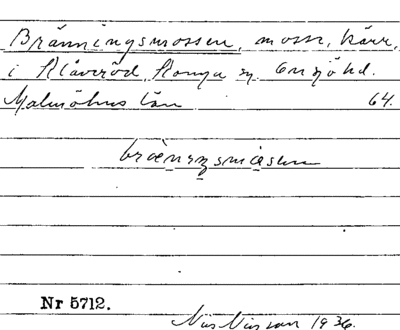 Bränningsmossen, mosse, kärr,
i Klåveröd, Konga sn. Onsjö hd.
Malmöhus län 64.
brœnɪŋsmåsen
Nr 5712.
Nils Nilsson 1936.